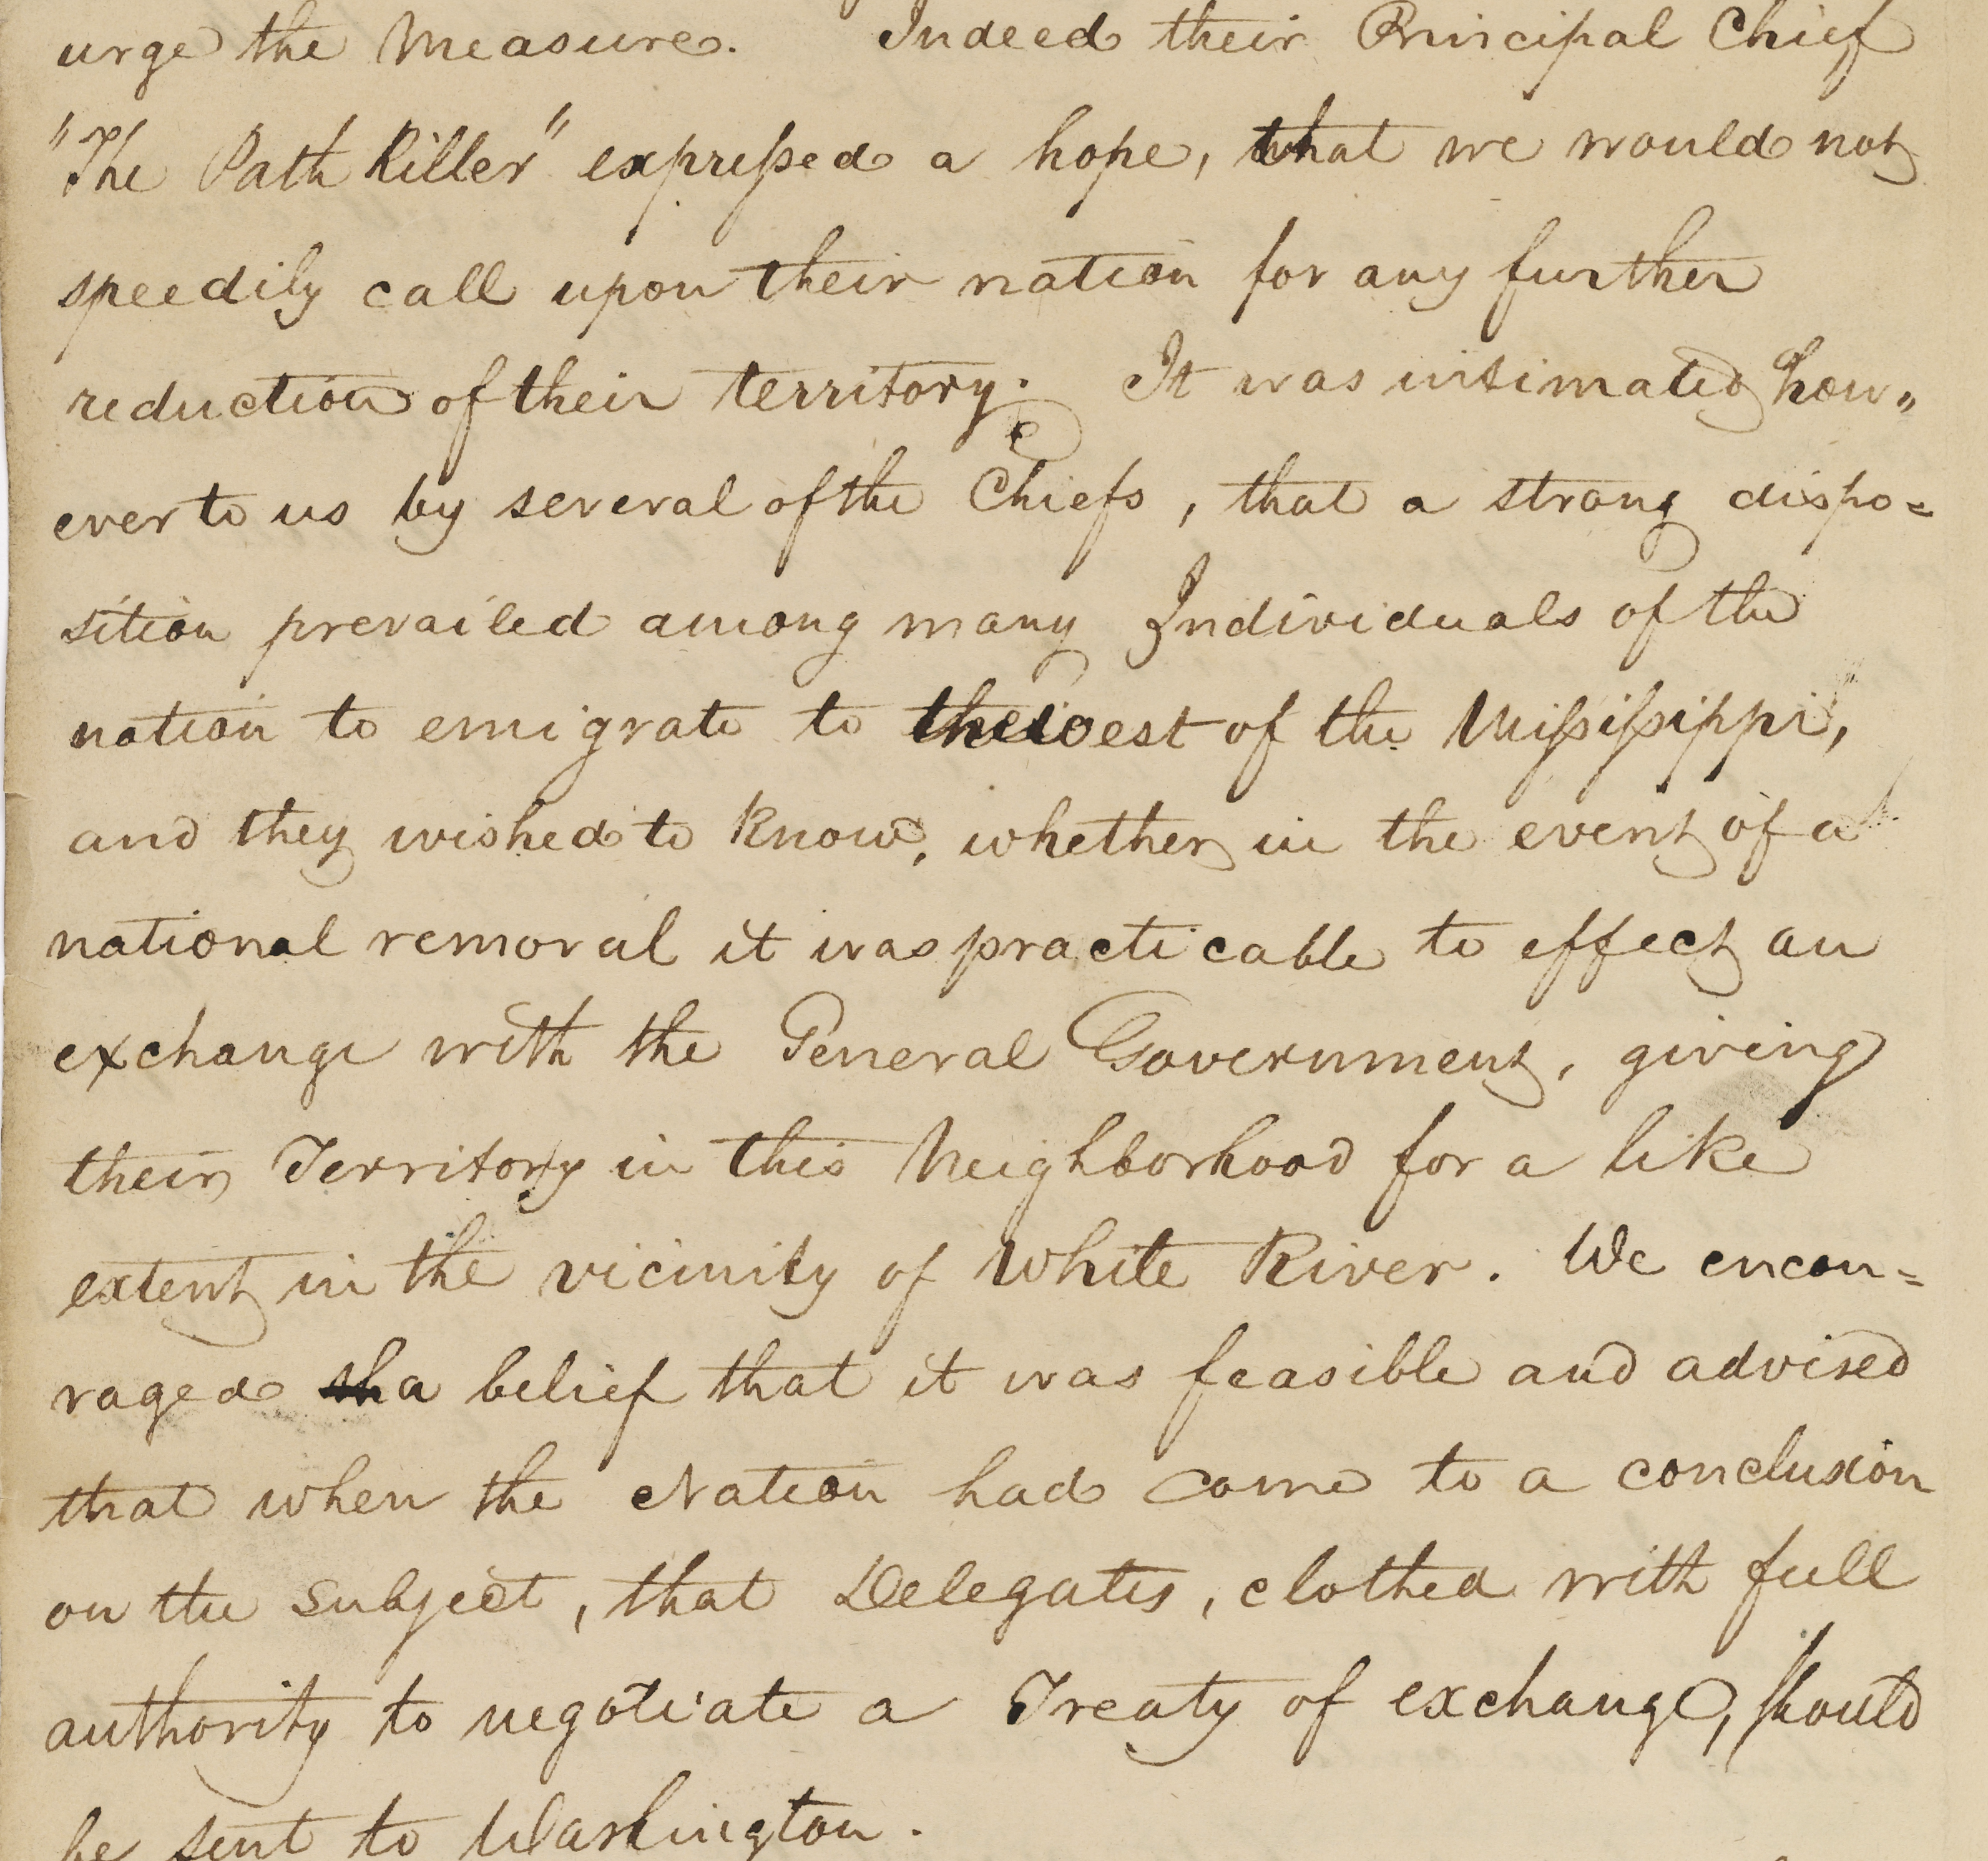 urge the Measure. Indeed their Principal Chief
"The Path Killer" expressed a hope, that we would not
speedily call upon their nation for any further
reduction of their territory. It was intimated how„
ever to us by several of the Chiefs, that a strong dispo=
sition prevailed among many Individuals of the
nation to emigrate to the west of the Mississippi,
and they wished to know, whether in the event of a
national removal it was practicable to effect an
exchange with the General Government, giving
their Territory in this Neighborhood for a like
extent in the vicinity of White River. We encou=
raged a belief that it was feasible and advised
that when the Nation had come to a conclusion
on the subject, that Delegates, clothed with full
authority to negotiate a Treaty of exchange, should
be sent to Washington.